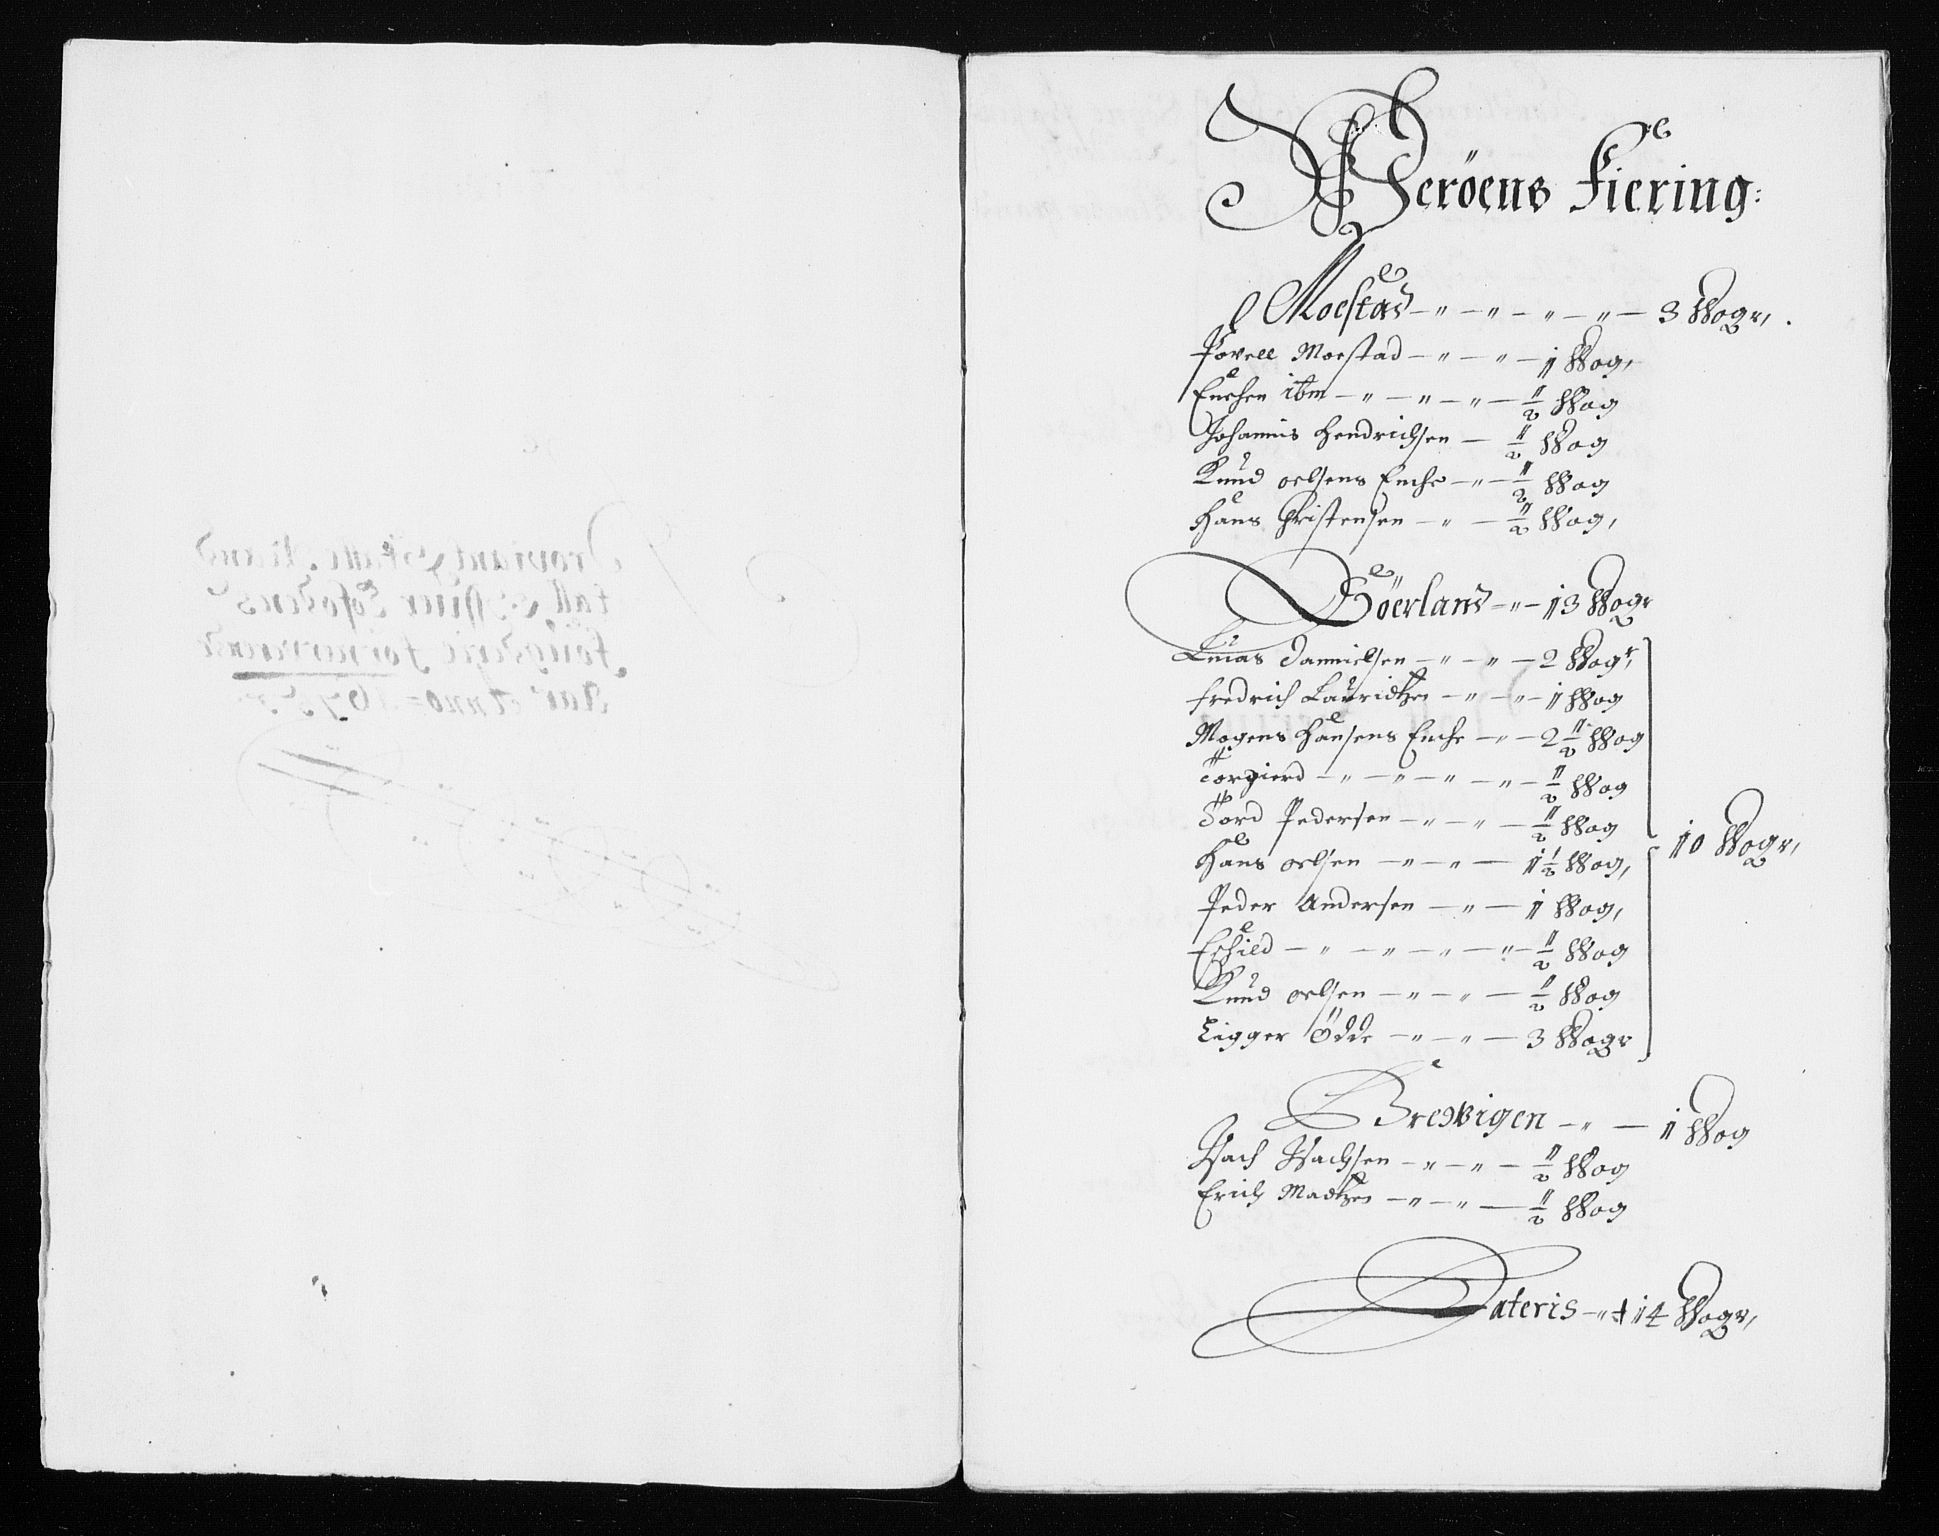 Weröens Fiering:
Moestad — " — " — " — " — 3 Wogr,
Povell Moestad — " — " — 1 Wog,
Enchen ibm — " — " — " — 1/2 Wog
Johannis Hendrichsen — 1/2 Wog
Knud oelsens Enche — " — 1/2 Wog
Hans Christensen — " — 1/2 Wog,
Söerland — " — 13 Wogr
Lucas Dannielsen — " — " — 2 Wogr,
Fredrich Lauridtzen — " — " — 1 Wog
Mogens Hansens Enche — " — 2 1/2 Wog
Torgierd — " — " — " — " — 1/2 Wog
Tord Pedersen — " — " — 1/2 Wog
Hans oelsen — " — " — 1 1/2 Wog,
10 Wogr,
Peder Andersen — " — 1 Wog,
Eschild — " — " — " — " — 1/2 Wog
Knud oelsen — " — " — 1/2 Wog
Ligger Ödde — " — " — 3 Wogr
Bredwigen — " — 1 Wog
Isach Isachsen — " — " — 1/2 Wog
Erich Madtzen — " — " — 1/2 Wog
Sateris — " 14 Wogr,